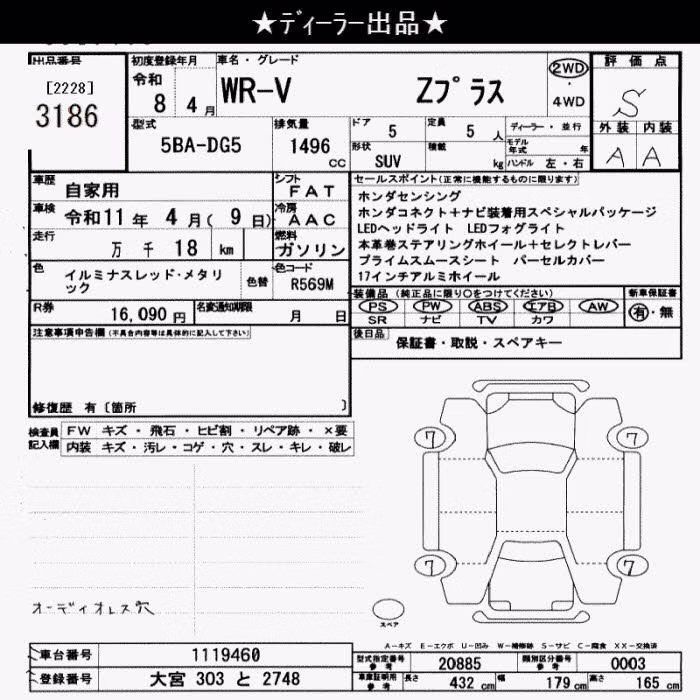 ★ディーラー出品★
出品番号
[2228]
3186
初度登録年月
令和
8 4月
車名・グレード
WR-V Zプラス
2WD
・
4WD
評価点
S
外装 内装
A A
型式
5BA-DG5
排気量
1496
CC
ドア
5
定員
5 人
形状
SUV
積載
kg
ディーラー・並行
モデル年式 年
ハンドル 左・右
車歴
自家用
車検
令和11年 4月( 9日)
走行
万 千 18 km
シフト
FAT
冷房
AAC
燃料
ガソリン
色
イルミナスレッド・メタリ
ック
色替
色コード
R569M
R券
16,090 円
名変通知期限
月 日
セールスポイント(正常に機能するものに限ります)
ホンダセンシング
ホンダコネクト+ナビ装着用スペシャルパッケージ
LEDヘッドライト LEDフォグライト
本革巻ステアリングホイール+セレクトレバー
プライムスムースシート パーセルカバー
17インチアルミホイール
装備品 (純正品に限り○をつけてください)
PS PW ABS エアB AW
SR ナビ TV カワ
新車保証書
有・無
後日品
保証書・取説・スペアキー
注意事項申告欄 (不具合内容等は具体的に記入して下さい)
修復歴 有〔箇所 〕
検査員
記入欄
FW キズ・飛石・ヒビ割・リペア跡・×要
内装 キズ・汚レ・コゲ・穴・スレ・キレ・破レ
7 7
7 7
オーディオレス穴
スペア
A-キズ E-エクボ U-凹み W-補修跡 S-サビ C-腐食 XX-交換済
車台番号
1119460
登録番号
大宮 303 と 2748
型式指定番号
参考
20885
類別区分番号
参考
0003
車庫証明用
参考
長さ 432 cm
幅 179 cm
高さ 165 cm